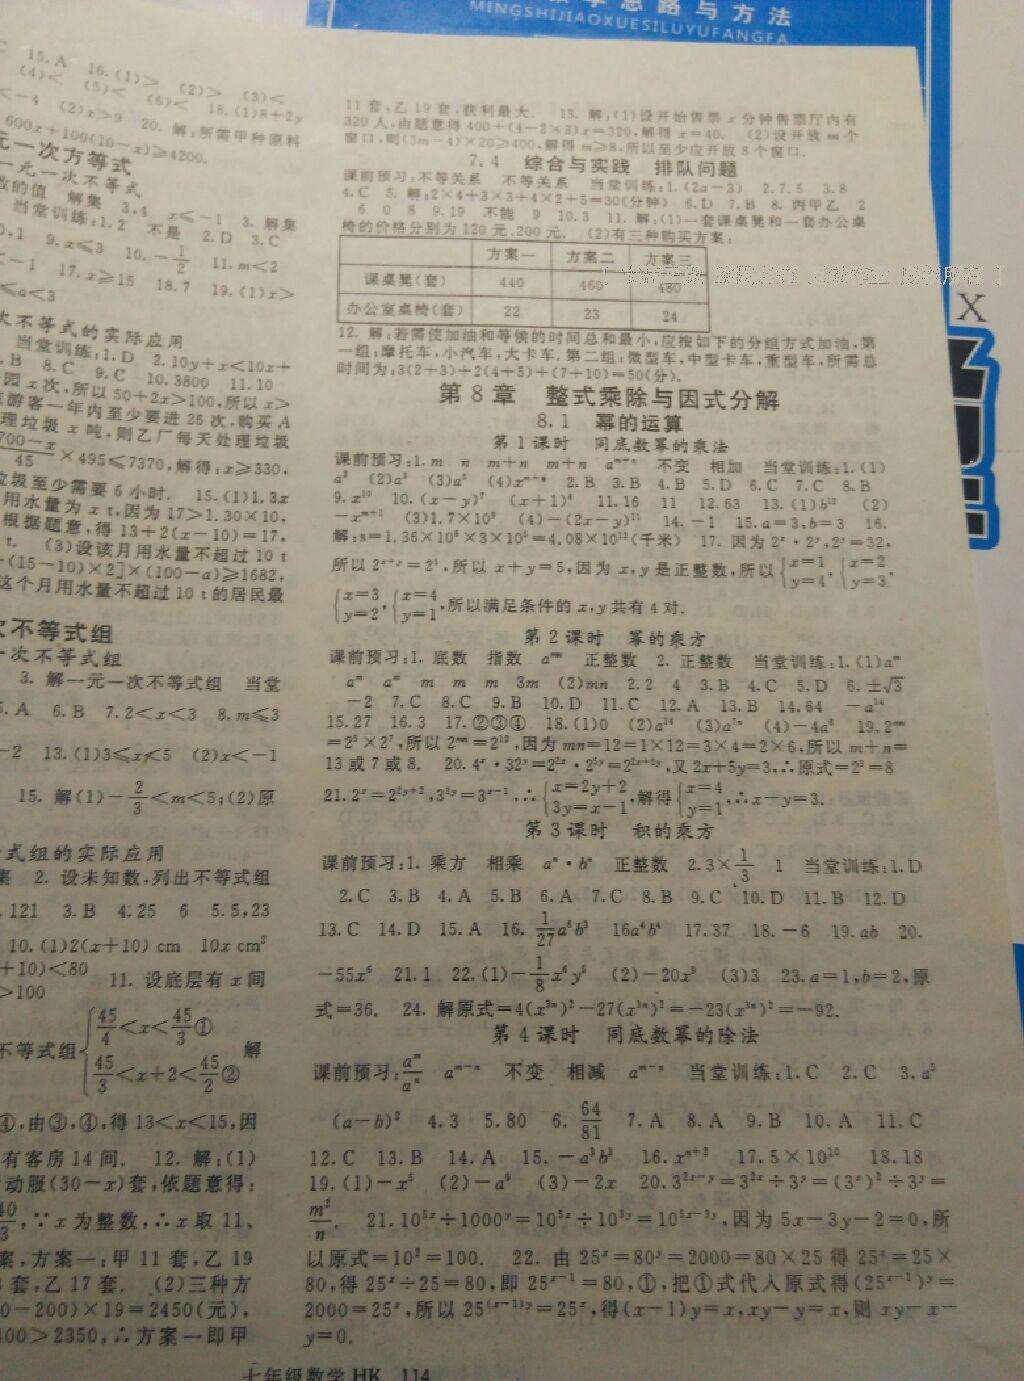 思路与方法
MINGSHIJIAOXUESILUYUFANGFA
15.A 16.(1)> (2)> (3)<
(4)< (5)< (6)< 18.(1)8+2y
<-4 (2)x>9 20. 解:所需甲种原料
600x+100(10-x)≥4200.
元一次方等式
一元一次不等式
数的值 解集 3.4 x≤-1 3. 解集
当堂训练:1.2 不是 2.D 3.C
0,1 9.x≤3 10.-1/2 11.m<2
<-1 17.x≥15 18.7 19.(1)x>
≤a<3
次不等式的实际应用
当堂训练:1.D 2.10y+x<10x+
.B 8.C 9.C 10.3800 11.10
园x次,所以50+2x>100,所以x>
游客一年内至少要进26次,购买A
理垃圾x吨,则乙厂每天处理垃圾
700-x/45×495≤7370,解得:x≥330,
垃圾至少需要6小时. 15.(1)1.3x
用水量为x t,因为17>1.30×10,
根据题意,得13+2(x-10)=17,
t. (3)设该月用水量不超过10 t
(15-10)×2]×(100-a)≥1682,
这个月用水量不超过10 t的居民最
次不等式组
一次不等式组
3. 解一元一次不等式组 当堂
5.A 6.B 7.2<x<3 8.m≤3
-2 13.(1)3≤x<5 (2)x<-1
15. 解(1)-2/3<m<5;(2)原
式组的实际应用
2. 设未知数,列出不等式组
.121 3.B 4.25 6 5.5,23
10.(1)2(x+10) cm 10x cm²
+10)<80
>100 11. 设底层有x间
不等式组{45/4<x<45/3① 解
45/3<x+2<45/2②
④,由③,④,得13<x<15,因
有客房14间. 12. 解:(1)
动服(30-x)套,依题意得:
40/3,∵x为整数,∴x取11、
案,方案一:甲11套,乙19
套,乙17套. (2)三种方
0-200)×19=2450(元),
400>2350,∴方案一即甲
11套,乙19套,获利最大. 13. 解:(1)设开始售票x分钟售票厅内有
320人,由题意得400+(4-2×3)x=320,解得x=40. (2)设开放m个
窗口,则(3m-4)×20≥400,解得m≥8,所以至少应开放8个窗口.
7.4 综合与实践 排队问题
课前预习:不等关系 不等关系 当堂训练:1.(2a-3) 2.7.5 3.8
4.C 5. 解:2×4+3×3+4×2+5=30(分钟) 6.D 7.B 8. 丙甲乙 2
6 0 8 9.19 不能 9 10.3 11. 解:(1)一套课桌凳和一套办公桌
椅的价格分别为120元、200元. (2)有三种购买方案:
方案一 方案二 方案三
课桌凳(套) 440 460 480
办公室桌椅(套) 22 23 24
X
12. 解:若需使加油和等候的时间总和最小,应按如下的分组方式加油,第
一组:摩托车,小汽车,大卡车.第二组:微型车,中型卡车,重型车,所需总
时间为:3(2+3)+2(4+5)+(7+10)=50(分).
第8章 整式乘除与因式分解
8.1 幂的运算
第1课时 同底数幂的乘法
课前预习:1. m n m+n m+n aᵐ⁺ⁿ 不变 相加 当堂训练:1.(1)
2.B 3.B 4.B 5.D 6.C 7.C 8.B
9.x¹⁰ 10.(x-y)⁷ 11.16 11 12.63 13.(1)b¹² (2)
-xᵐ⁺¹ (3)1.7×10⁹ (4)-(2x-y)¹¹ 14.-1 15.a=3,b=3 16.
解:s=1.36×10⁸×3×10⁵=4.08×10¹³(千米) 17. 因为2ˣ·2ʸ,2ʸ=32,
所以2ˣ⁺ʸ=2⁵,所以x+y=5,因为x,y是正整数,所以{x=1 y=4,{x=2, y=3,
{x=3 y=2,{x=4 y=1,所以满足条件的x,y共有4对.
第2课时 幂的乘方
课前预习:1. 底数 指数 aᵐⁿ 正整数 2. 正整数 当堂训练:1.(1)aᵐ
aᵐ aᵐ m m m 3m (2)mn 2.2 4 3.B 4.C 5.D 6.±√3
-2 7.C 8.C 9.B 10.D 11.C 12.A 13.B 14.64 -a¹⁴
15.27 16.3 17.②③④ 18.(1)0 (2)a¹⁴ (4)-4a⁶ 19.2ᵐⁿ
=2⁵×2⁷,所以2ᵐⁿ=2¹²,因为mn=12=1×12=3×4=2×6,所以m+n=
13或7或8. 20.4ˣ·32ʸ=2²ˣ·2⁵ʸ=2²ˣ⁺⁵ʸ,又2x+5y=3,∴原式=2³=8
21.2ˣ=2²ʸ⁺²,3³ʸ=3ˣ⁻¹,∴{x=2y+2 3y=x-1,解得{x=4 y=1,∴x-y=3.
第3课时 积的乘方
课前预习:1. 乘方 相乘 aⁿ·bⁿ 正整数 2.3×1/3 1 当堂训练:1.D
2.C 3.B 4.A 5.B 6.A 7.C 8.B 9.C 10.D 11.B 12.D
13.C 14.D 15.A 16. 1/27a⁶b³ 16a⁴b⁴ 17.37 18.-6 19.ab 20.
-55x⁶ 21.1 22.(1)-1/8x⁶y⁵ (2)-20x⁹ (3)3 23.a=1,b=2,原
式=36. 24. 解原式=4(x³ⁿ)²-27(x³ⁿ)²=-23(x³ⁿ)²=-92.
第4课时 同底数幂的除法
课前预习:aᵐ/aⁿ aᵐ⁻ⁿ 不变 相减 aᵐ⁻ⁿ 当堂训练:1.C 2.C 3.a⁵
(a-b)² 4.3 5.80 6. 64/81 7.A 8.A 9.B 10.A 11.C
12.C 13.B 14.A 15.-a³b³ 16.xⁿ⁺² 17.5×10¹⁰ 18.18
19.(1)-x⁵ (2)-a⁶ (3)-2x 20.3²ˣ⁻ʸ=3²ˣ÷3ʸ=(3ˣ)²÷3ʸ=
m²/n. 21.10⁵ˣ÷1000ʸ=10⁵ˣ÷10³ʸ=10⁵ˣ⁻³ʸ,因为5x-3y-2=0,所
以原式=10²=100. 22. 由25ˣ=80ʸ=2000=80×25得25ˣ=25×
80,得25ˣ÷25=80,即25ˣ⁻¹=80,①,把①式代入原式得(25ˣ⁻¹)ʸ=
2000=25ˣ,所以25⁽ˣ⁻¹⁾ʸ=25ˣ,得(x-1)y=x,xy-y=x,则xy-x-
y=0.
七年级数学HK 114